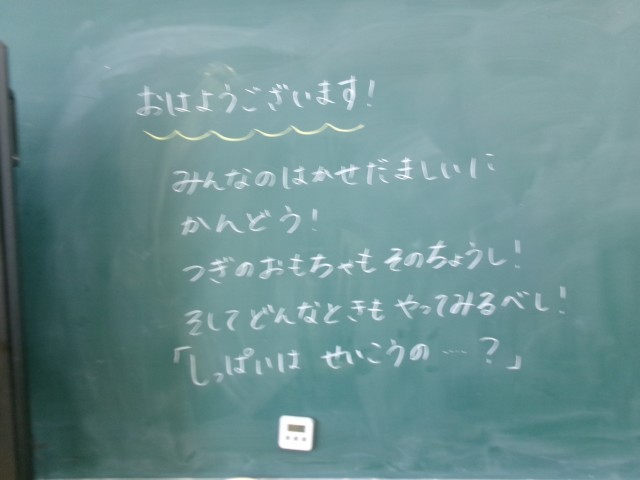 おはようございます!
みんなのはかせだましいに
かんどう!
つぎのおもちゃもそのちょうし!
そしてどんなときもやってみるべし!
「しっぱいは せいこうの……?」